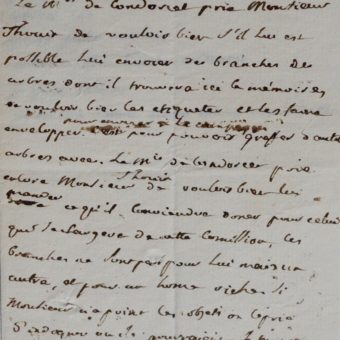 Le Mis de Condorcet prie Monsieur
Thouin de vouloir bien s'il lui est
possible lui envoier des branches des
arbres dont il trouvera ici le mémoires
et vouloir bien les etiqueter et les faire
pour envoier a la campagne
envelopper c'est pour pouvoir greffer d'autres
arbres avec. Le Mis de Condorcet prie
encore Monsieur Thouin de vouloir bien lui
mander
ce qu'il conviendra doner pour celui
qui se chargera de cette comission, ces
branches ne sont pas pour lui mais un
autre, et pour un home riche. si
Monsieur n'a point les objets on le prie
d'indiquer où il pourroit